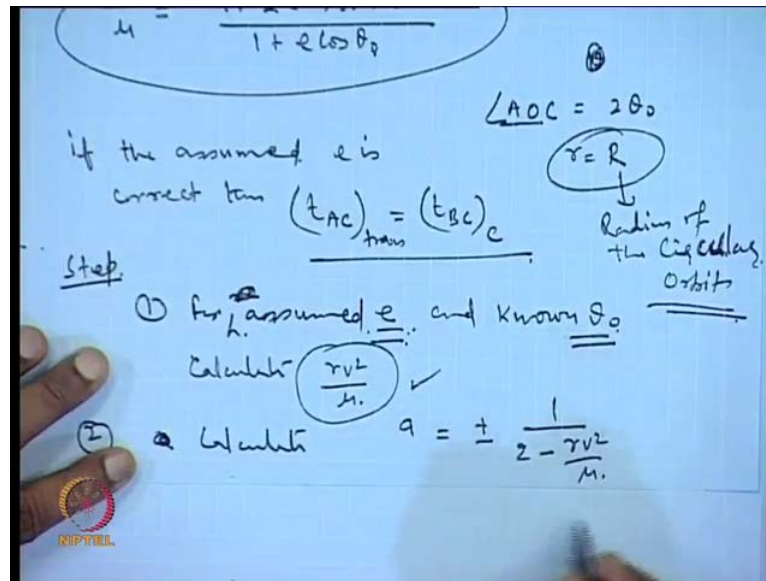 μ =
1 + e cos θ₀
∠AOC = 2θ₀
r = R
Radius of
the Circular
Orbits
if the assumed e is
correct then (t_AC)_trans = (t_BC)_c
Step
① For assumed e and known θ₀
Calculate rv²/μ. ✓
② Calculate a = ± 1/(2 - rv²/μ.)
NPTEL